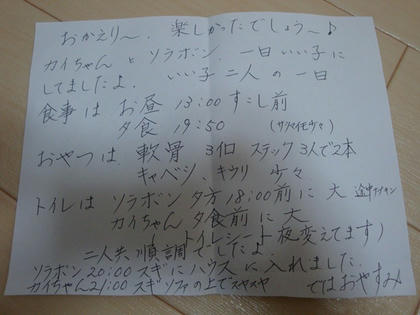 おかえり〜. 楽しかったでしょう〜♪
カイちゃん と ソラボン. 一日 いい子 に
してましたよ. いい子 二人 の 一日
食事は お昼 13:00 すこし 前
夕食 19:50 (サツマイモヅャ)
おやつは 軟骨 3個 スティック 3人で2本
キャベジ、キウリ 少々
トイレは ソラボン 夕方 18:00前 に 大 途中
カイちゃん 夕食前 に 大
トイレシート 一枚変えてます)
二人共 順調でしたよ.
ソラボン 20:00 スギに ハウス に 入れました.
カイちゃん21:00 スギ ソファの上でスヤスヤ ではおやすみ♪